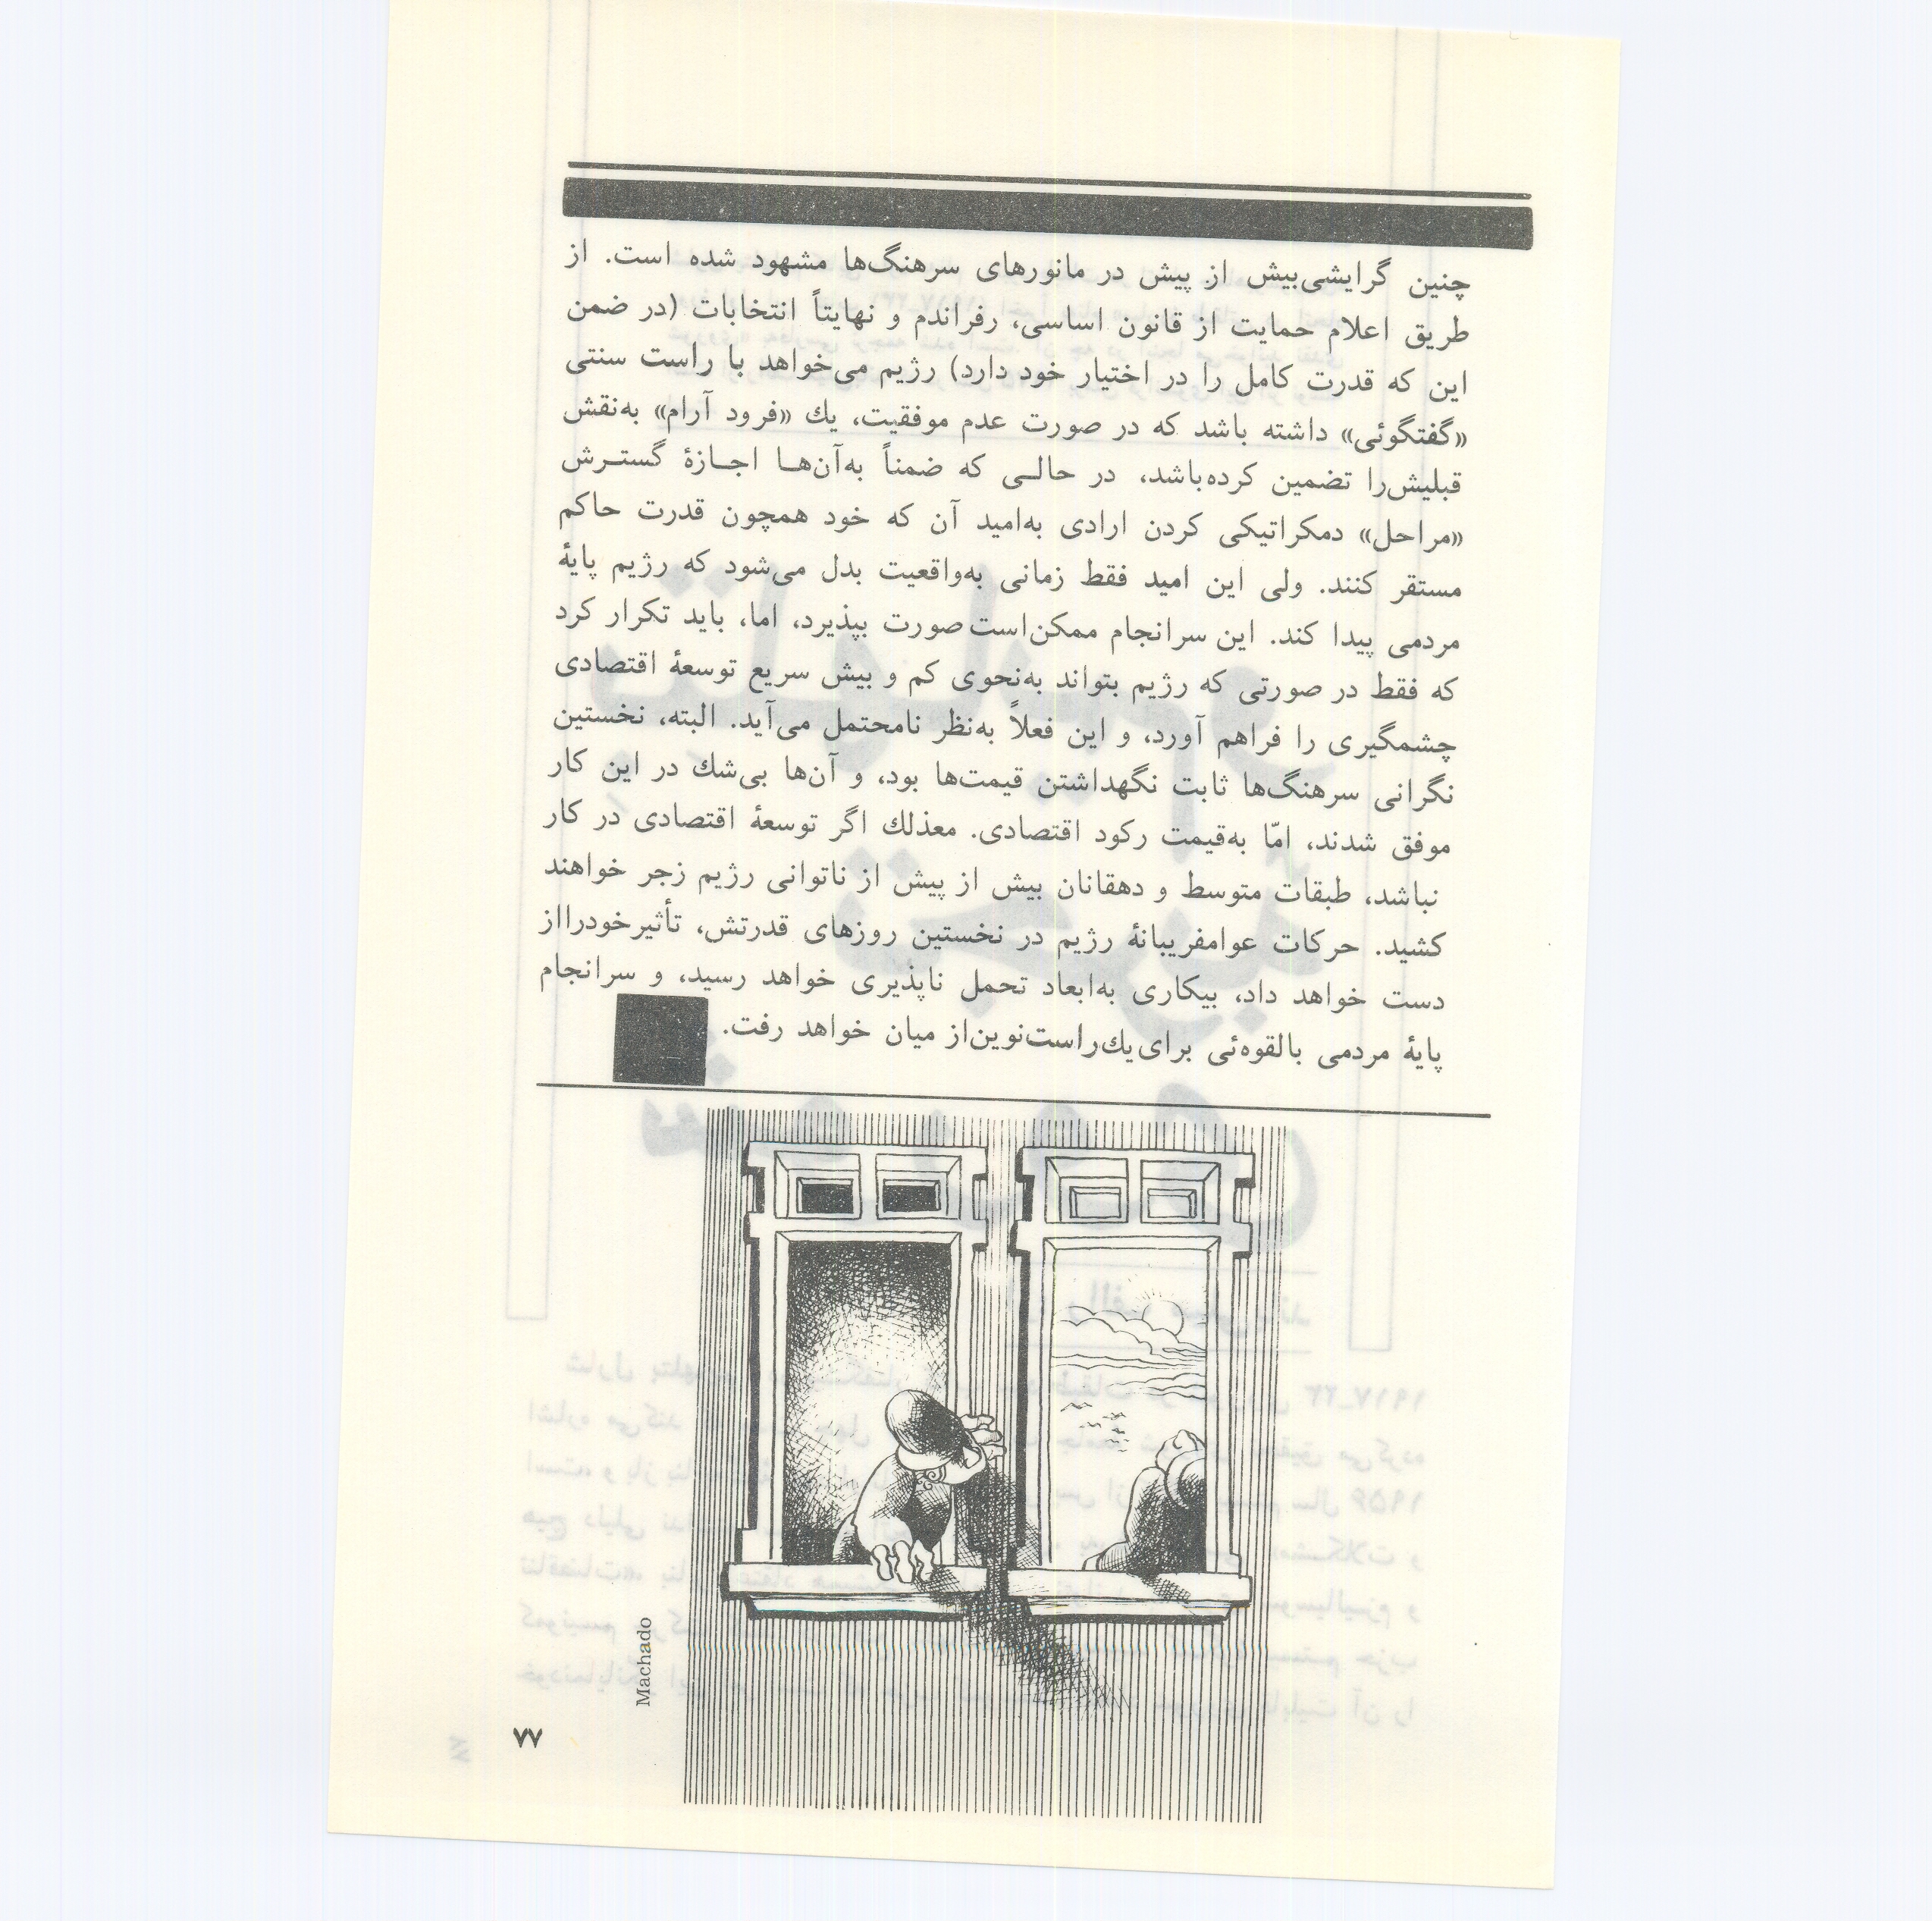 چنین گرایشی‌بیش از پیش در مانورهای سرهنگ‌ها مشهود شده است. از
طریق اعلام حمایت از قانون اساسی، رفراندم و نهایتاً انتخابات (در ضمن
این که قدرت کامل را در اختیار خود دارد) رژیم می‌خواهد با راست سنتی
«گفتگوئی» داشته باشد که در صورت عدم موفقیت، یك «فرود آرام» به‌نقش
قبلیش‌را تضمین کرده‌باشد، در حالـی که ضمناً به‌آن‌هـا اجـازهٔ گستـرش
«مراحل» دمکراتیکی کردن ارادی به‌امید آن که خود همچون قدرت حاکم
مستقر کنند. ولی این امید فقط زمانی به‌واقعیت بدل می‌شود که رژیم پایهٔ
مردمی پیدا کند. این سرانجام ممکن‌است صورت بپذیرد، اما، باید تکرار کرد
که فقط در صورتی که رژیم بتواند به‌نحوی کم و بیش سریع توسعهٔ اقتصادی
چشمگیری را فراهم آورد، و این فعلاً به‌نظر نامحتمل می‌آید. البته، نخستین
نگرانی سرهنگ‌ها ثابت نگهداشتن قیمت‌ها بود، و آن‌ها بی‌شك در این کار
موفق شدند، امّا به‌قیمت رکود اقتصادی. معذلك اگر توسعهٔ اقتصادی در کار
نباشد، طبقات متوسط و دهقانان بیش از پیش از ناتوانی رژیم زجر خواهند
کشید. حرکات عوامفریبانهٔ رژیم در نخستین روزهای قدرتش، تأثیرخودرااز
دست خواهد داد، بیکاری به‌ابعاد تحمل ناپذیری خواهد رسید، و سرانجام
پایهٔ مردمی بالقوه‌ئی برای‌یك‌راست‌نوین‌از میان خواهد رفت.
Machado
۷۷